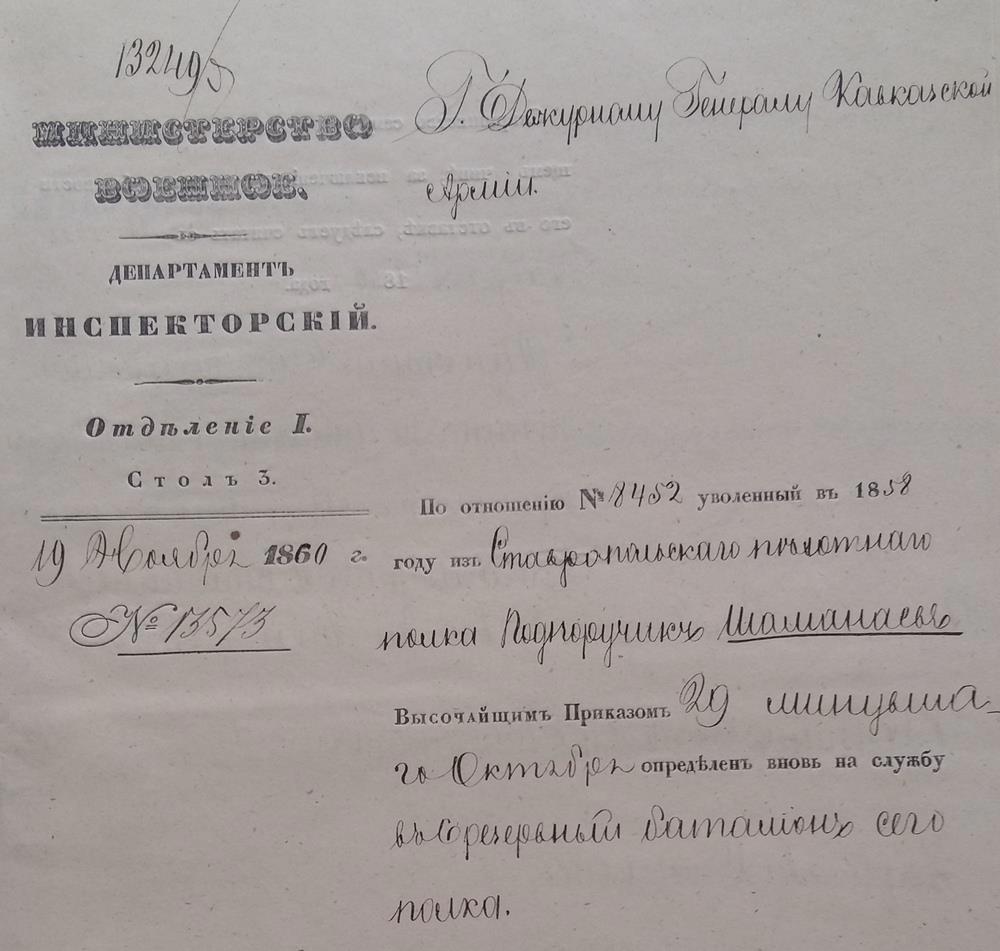 132495
МИНИСТЕРСТВО
ВОЕННОЕ.
ДЕПАРТАМЕНТЪ
ИНСПЕКТОРСКІЙ.
Отдѣленіе I.
Столъ 3.
19 Ноября 1860 г.
№ 13573
Г. Дежурному Генералу Кавказской
Арміи.
По отношенію № 8452 уволенный въ 1858
году изъ Ставропольскаго пѣхотнаго
полка Подпоручикъ Шаманаевъ
Высочайшимъ Приказомъ 29 минувша-
го Октября опредѣленъ вновь на службу
въ резервный баталіонъ сего
полка.